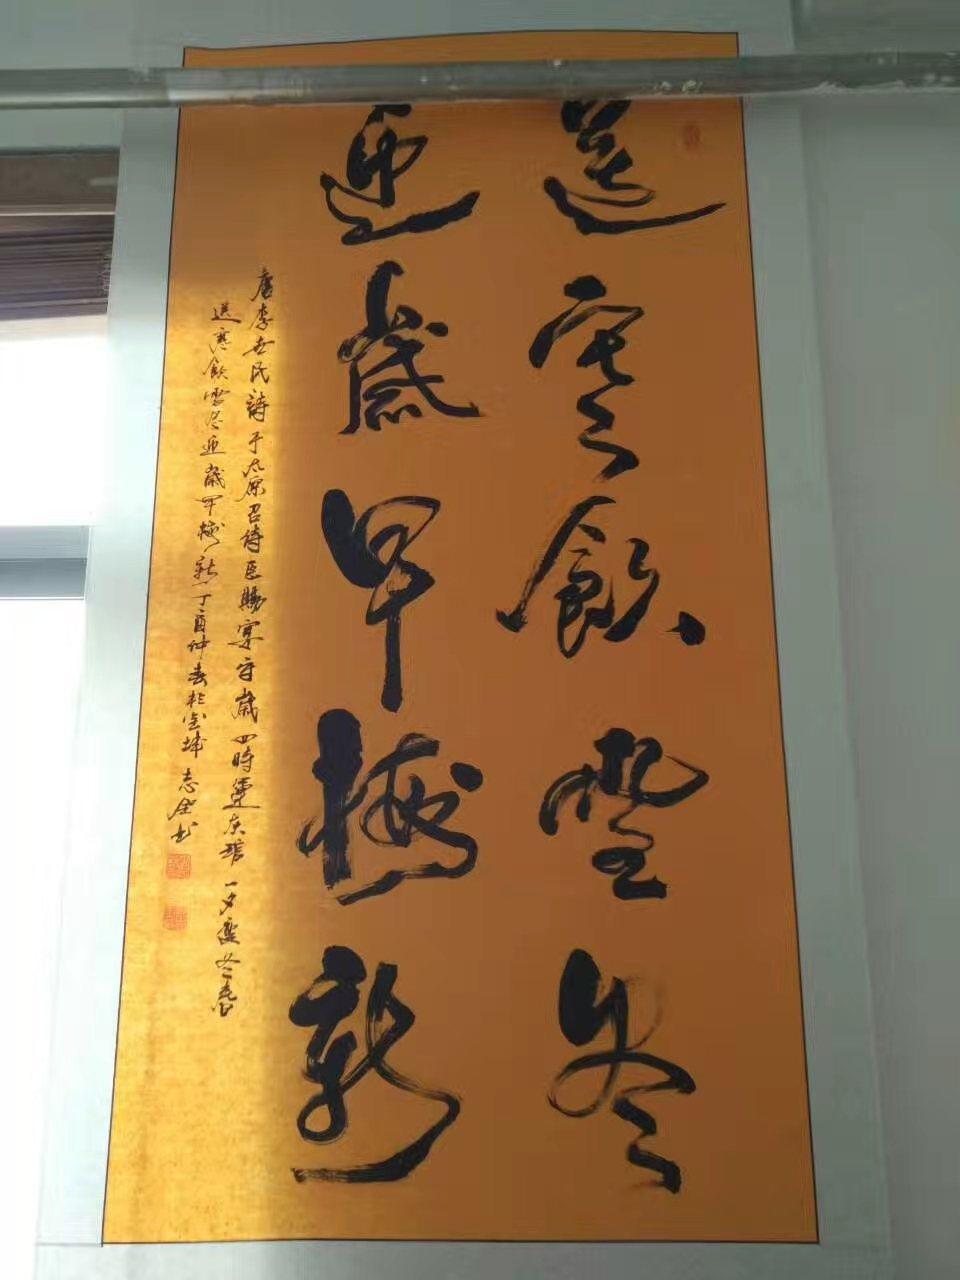 送寒餘雪尽
迎歲早梅新
唐李世民詩于太原召侍臣賜宴守歲四時運灰琯一夕變冬春
送寒餘雪尽迎歲早梅新丁酉仲春於金城志金书